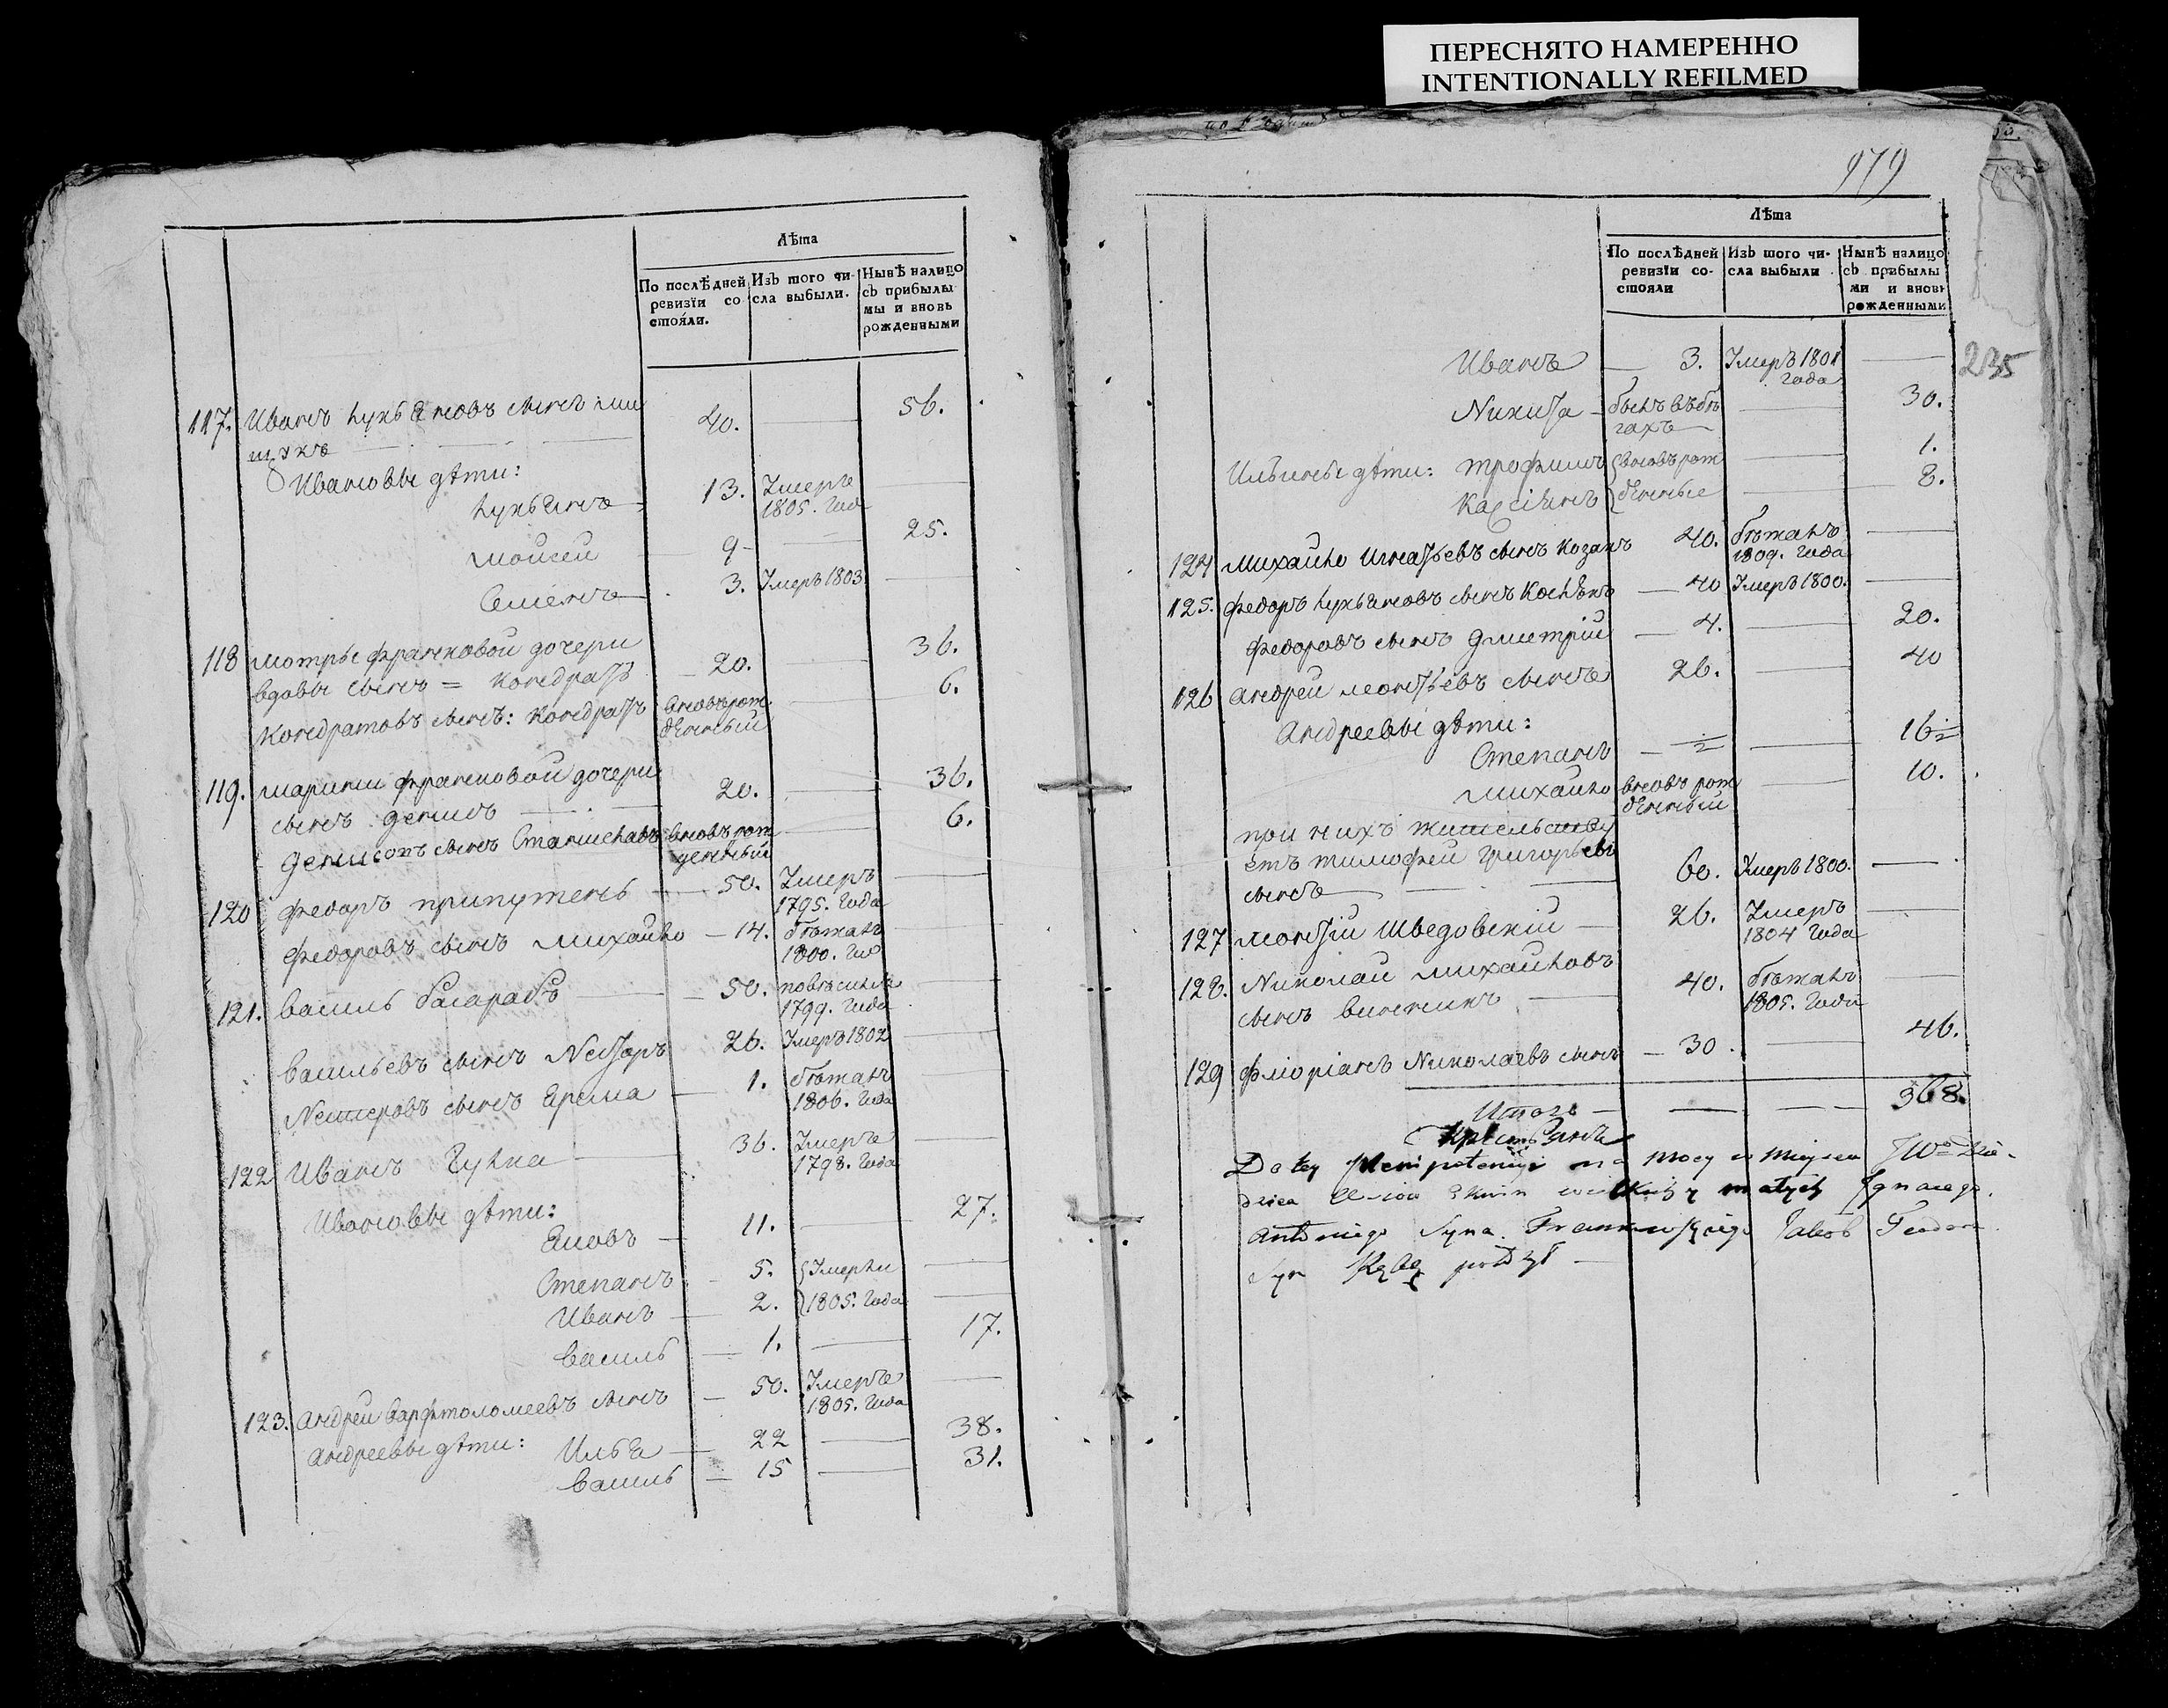 ПЕРЕСНЯТО НАМЕРЕННО
INTENTIONALLY REFILMED
Лѣта
По послѣдней ревизїи состояли.
Изъ того числа выбыли.
Нынѣ налицо съ прибылымы и вновь рожденными
117. Иванъ Лукьяновъ сынъ 40. 56.
Ивановы дѣти:
Лукьянъ 13. Умеръ 1805. года
Моисей 9 25.
Семенъ 3. Умеръ 1803
118 Мотры Франковой дочери
вдовы сынъ = Кондратъ 20. 36.
Кондратовъ сынъ: Кондратъ вновь рожденный 6.
119. Марини Франковой дочери
сынъ Денисъ 20. 36.
Денисовъ сынъ Станиславъ вновь рожденный 6.
120 Федоръ Припутень 50. Умеръ 1795. года
Федоровъ сынъ Михайло 14. бѣжалъ 1800. год
121. Василь Басарабъ 50. 1799. года
Васильевъ сынъ Несторъ 26. Умеръ 1802
Нестеровъ сынъ Ерема 1. бѣжалъ 1806. года
122 Иванъ Гулка 36. Умеръ 1798. года
Ивановы дѣти:
Яковъ 11. 27.
Степанъ 5. Умерли
Иванъ 2. 1805. года
Василь 1. 17.
123. Андрей Варфтоломеевъ сынъ 50. Умеръ 1805. года
Андреевы дѣти: Илья 22 38.
Василь 15 31.
979
235
Лѣта
По послѣдней ревизїи состояли
Изъ того числа выбыли
Нынѣ налицо съ прибылыми и вновь рожденными
Иванъ 3. Умеръ 1801 года
Никита былъ въ бѣгахъ 30.
Ильины дѣти: Трофимъ вновь рож 1.
Касіянъ денные 8.
124 Михайло Игнатьевъ сынъ Козакъ 40. бѣжалъ 1809. года
125. Федоръ Лукьяновъ сынъ 40 Умеръ 1800.
Федоровъ сынъ Дмитрій 4. 20.
126 Андрей Леонтьевъ сынъ 26. 40
Андреевы дѣти:
Степанъ ½ 16½
Михайло вновь рожденный 10.
при нихъ жительству
етъ Тимофей Григорьевъ
сынъ 60. Умеръ 1800.
127 Леонтій Шведовскій 26. Умеръ 1804 года
128. Николай Михайловъ
сынъ 40. бѣжалъ 1805. года
129 Флоріанъ Николаевъ сынъ 30. 46.
Итого 368.
Крестьянъ
Do tey Plenipotencyi na Mocy w Mieyscu JWo
małych Ignacego
Antoniego Syna Jakob Teodora
Syn Ręką